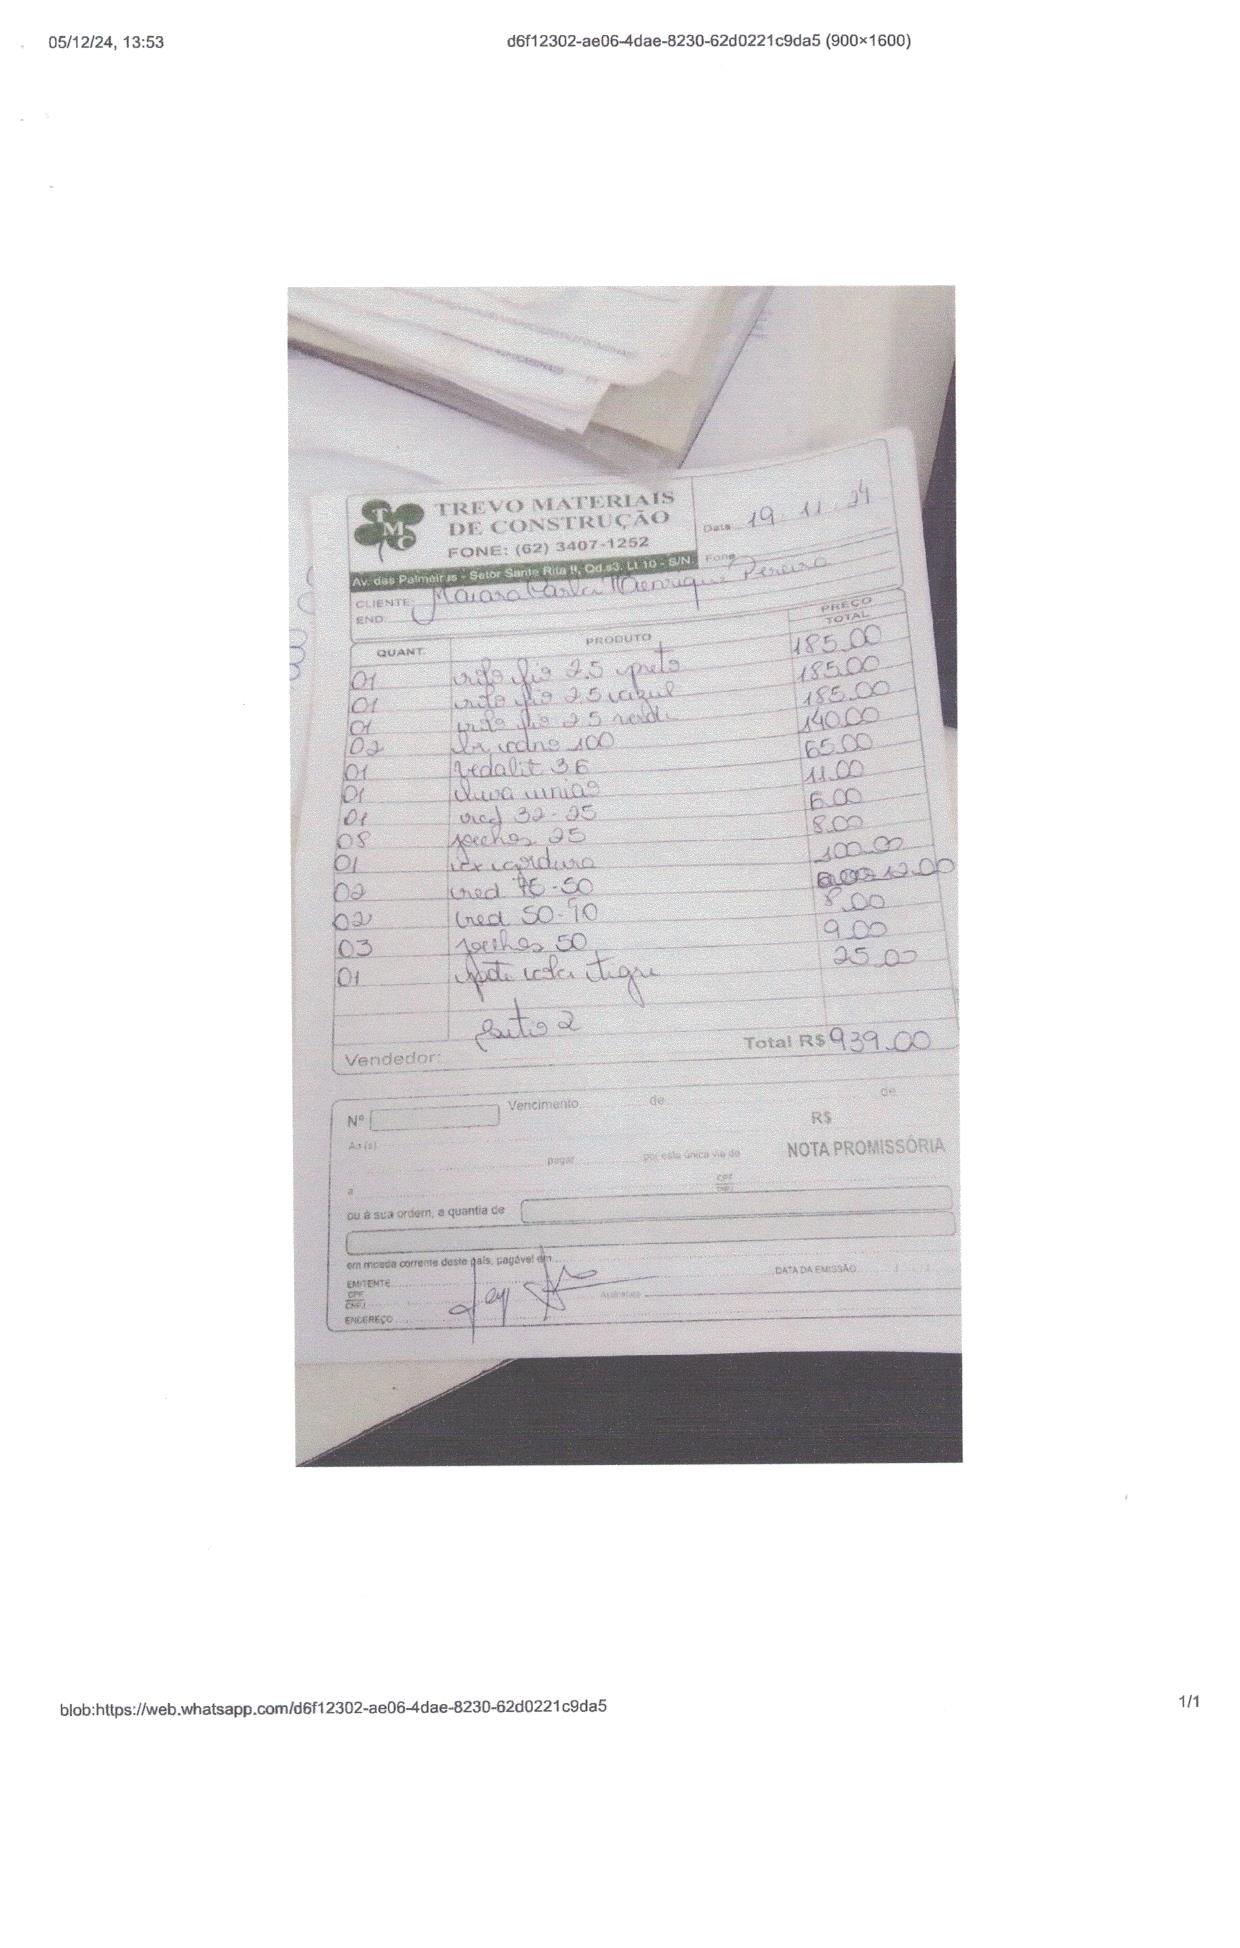 05/12/24, 13:53
d6f12302-ae06-4dae-8230-62d0221c9da5 (900×1600)
TMC
TREVO MATERIAIS
DE CONSTRUÇÃO
FONE: (62) 3407-1252
Data 19 11 24
Av. das Palmeiras - Setor Santa Rita II, Qd.s3, Lt 10 - S/N. Fone
CLIENTE: Maiara Carla Henrique Pereira
END
QUANT. PRODUTO PREÇO TOTAL
01 rolo fio 2.5 preto 185.00
01 rolo fio 2.5 azul 185.00
01 rolo fio 2.5 verde 185.00
02 cano 100 140.00
01 vedalit 3.6 65.00
01 luva união 11.00
01 red 32-25 6.00
08 joelhos 25 8.00
01 cx gordura 100.00
02 red 75-50 12.00
02 red 50-40 8.00
03 joelhos 50 9.00
01 pote cola tigre 25.00
2
Vendedor: Total R$ 939.00
Nº Vencimento de de
R$
Ao(s)
NOTA PROMISSÓRIA
pagar por esta única via de
a CPF CNPJ
ou à sua ordem, a quantia de
em moeda corrente deste país, pagável em
EMITENTE DATA DA EMISSÃO / /
CPF CNPJ Assinatura
ENDEREÇO
blob:https://web.whatsapp.com/d6f12302-ae06-4dae-8230-62d0221c9da5
1/1